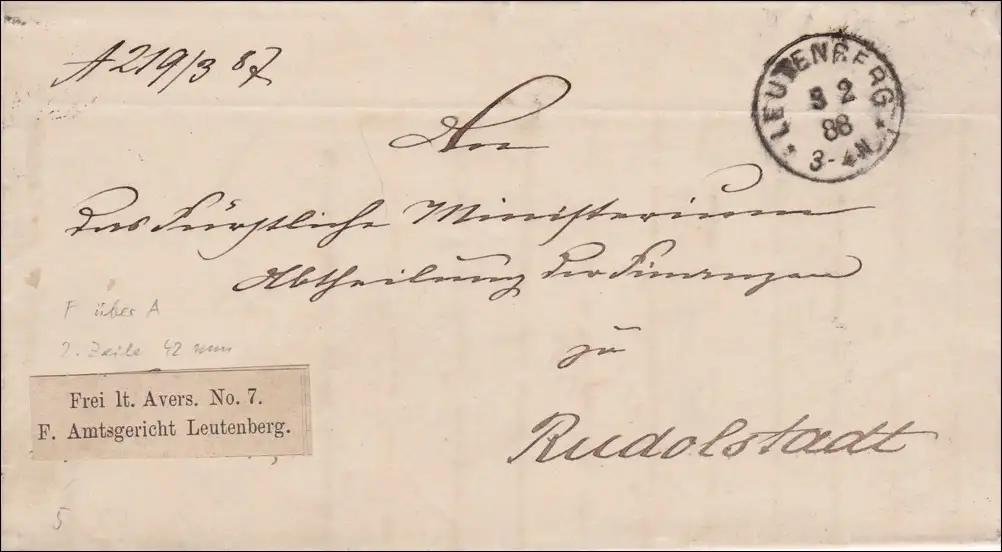 A 219/3 87
LEUTENBERG
3 2
88
3-4N
An
das Fürstliche Ministerium
Abtheilung der Finanzen
zu
Rudolstadt
F über A
2. Zeile 42 mm
Frei lt. Avers. No. 7.
F. Amtsgericht Leutenberg.
5